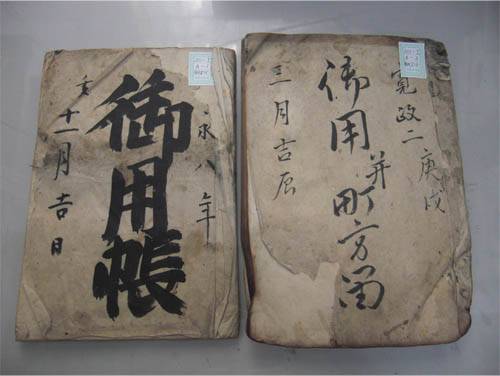 寛政二庚戌
御用并町方留
三月吉辰
永八年
御用帳
亥十一月吉日